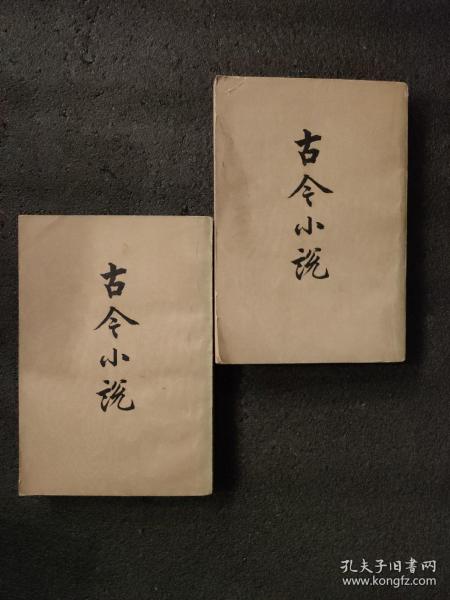 古今小说
古今小说
孔夫子旧书网
www.kongfz.com